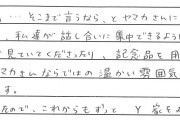 … そこまで言うなら、とヤマカさんに
、私達が話し合いに集中できるよう
見ていてくださったり、記念品を用
マカさんならではの温かい雰囲気
す。
たので、これからもずっと Y 家をよ